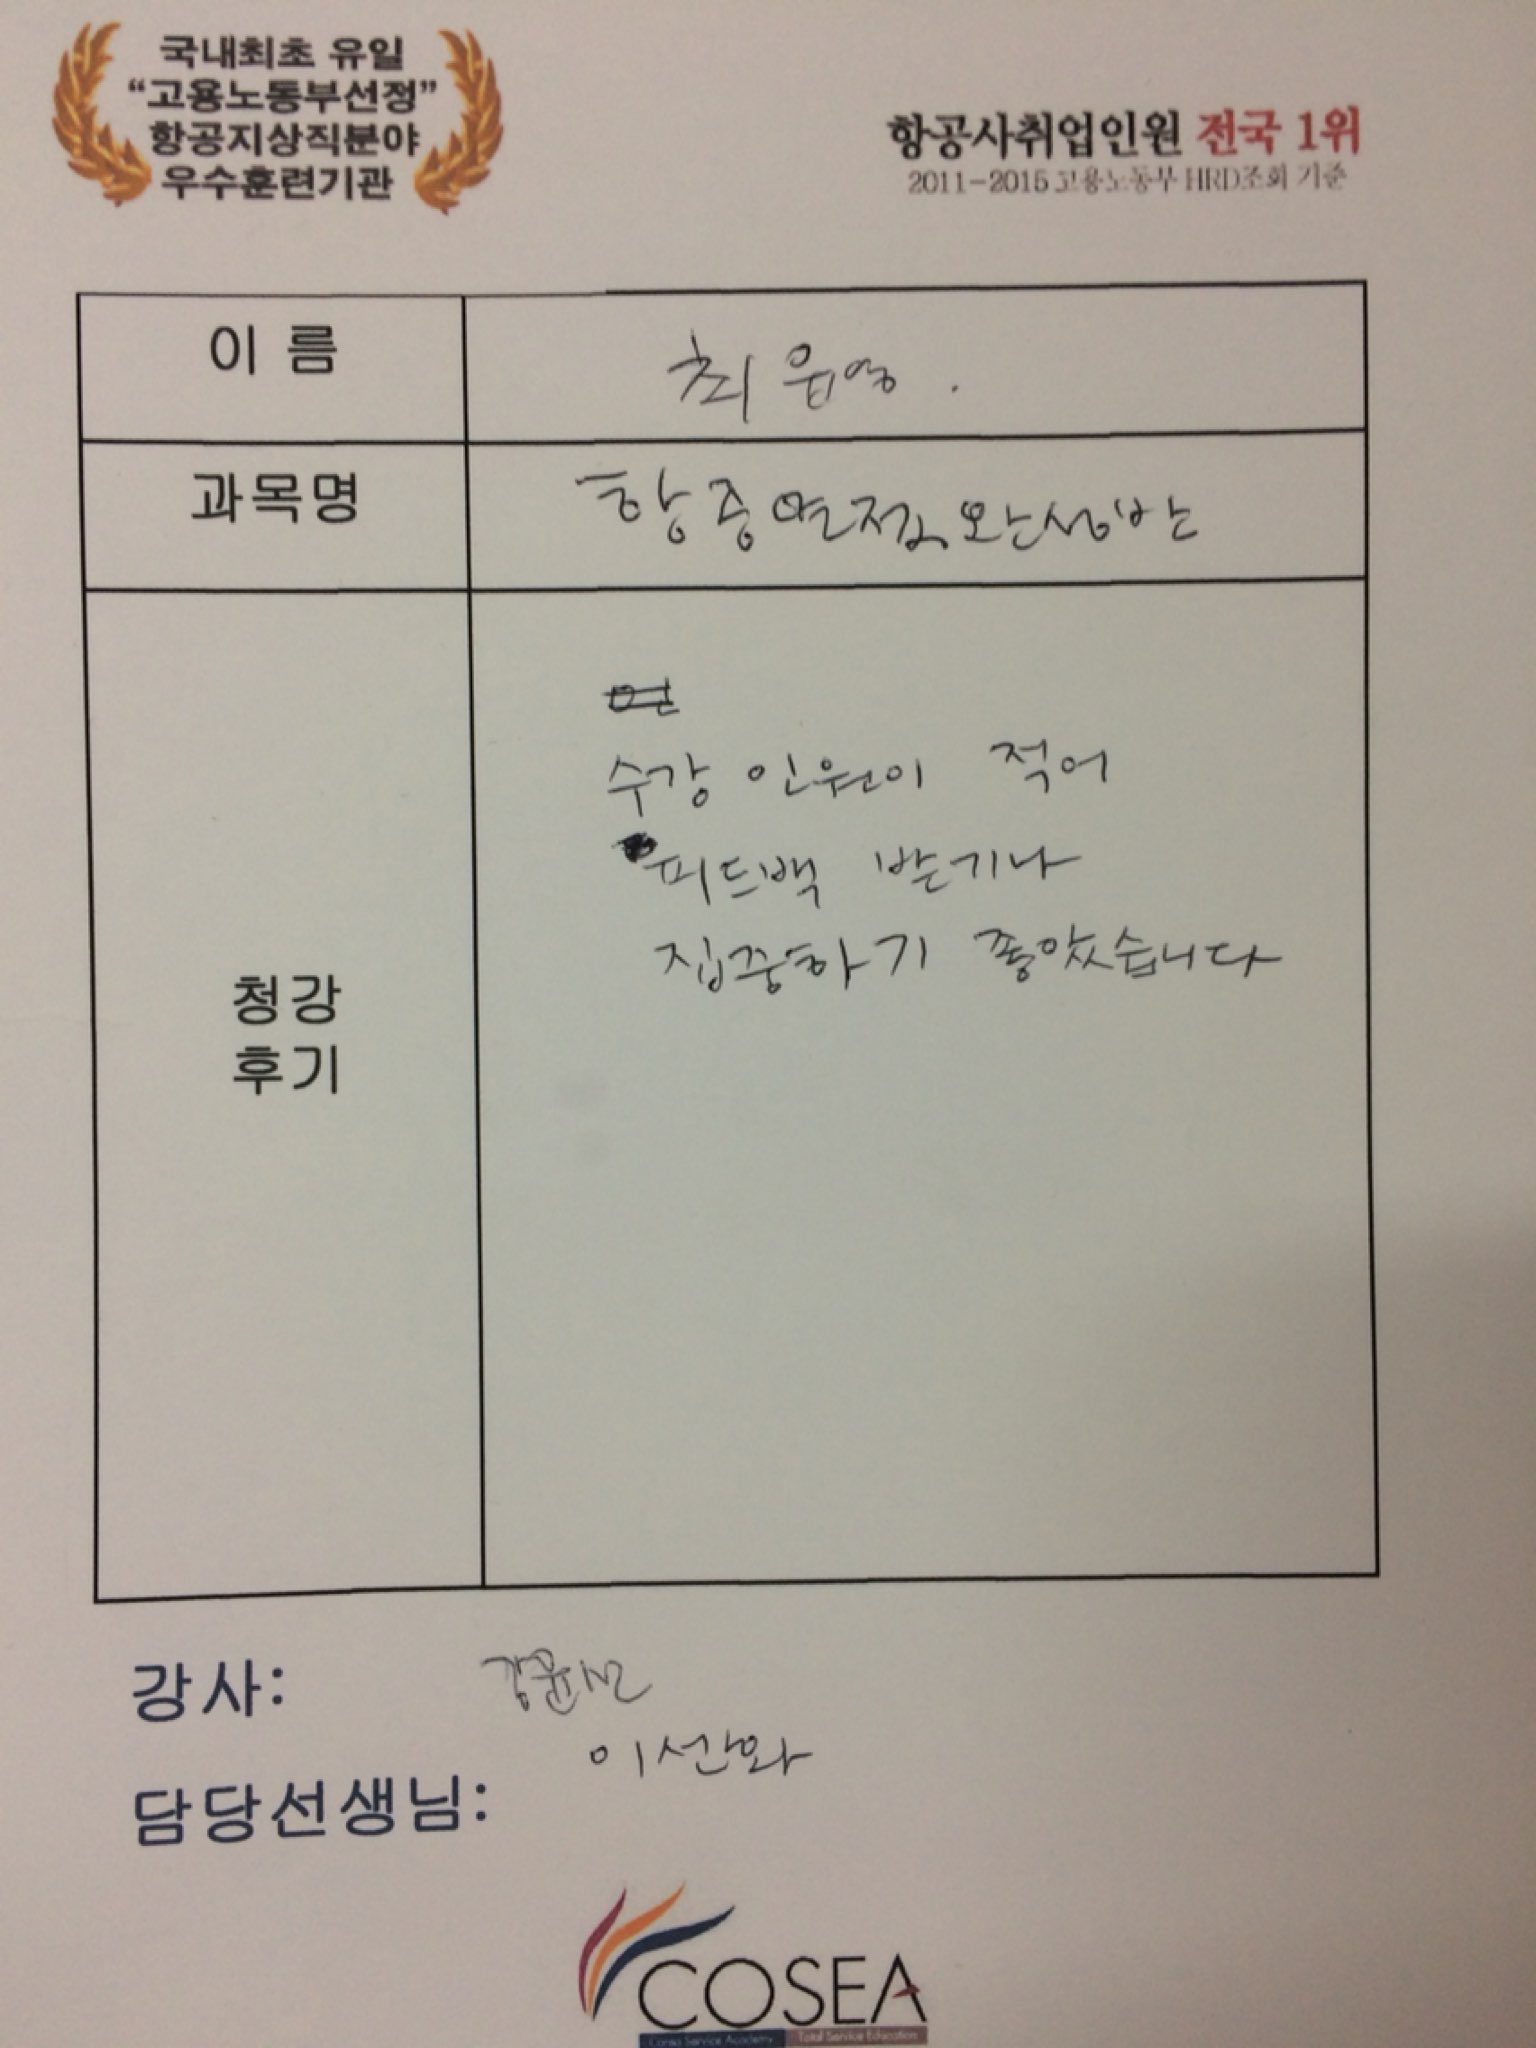 국내최초 유일
“고용노동부선정”
항공지상직분야
우수훈련기관
항공사취업인원 전국 1위
2011-2015 고용노동부 HRD조회 기준
이 름
최
과목명
완성반
청강
후기
수강 인원이 적어
피드백 받기나
집중하기 좋았습니다
강사:
이선화
담당선생님:
COSEA
Corea Service Academy Total Service Education